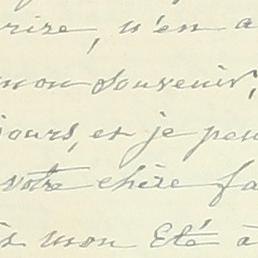 rire, n'en a
mon souvenir,
jours, et je pen
votre chère fa
is mon Eté à